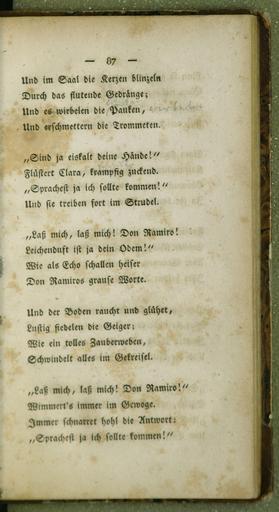 — 87 —
Und im Saal die Kerzen blinzeln
Durch das flutende Gedränge;
Und es wirbelen die Pauken,
Und erschmettern die Trommeten.
„Sind ja eiskalt deine Hände!“
Flüstert Clara, krampfig zuckend.
„Sprachest ja ich sollte kommen!“
Und sie treiben fort im Strudel.
„Laß mich, laß mich! Don Ramiro!
Leichenduft ist ja dein Odem!“
Wie als Echo schallen heiser
Don Ramiros grause Worte.
Und der Boden raucht und glühet,
Lustig fiedelen die Geiger;
Wie ein tolles Zauberweben,
Schwindelt alles im Gekreisel.
„Laß mich, laß mich! Don Ramiro!“
Wimmert's immer im Gewoge.
Immer schnarret hohl die Antwort:
„Sprachest ja ich sollte kommen!“